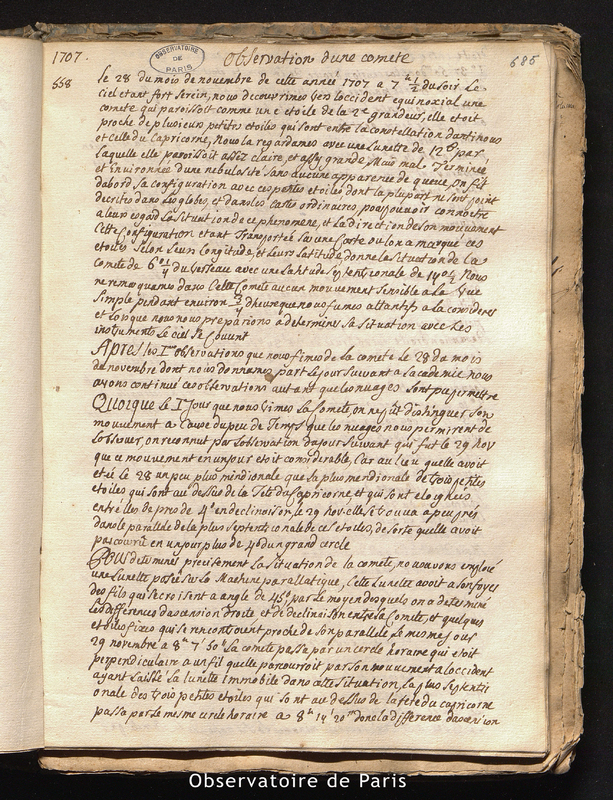 1707.
OBSERVATOIRE DE PARIS
Observation d'une comete
685
558
le 28 du mois de novembre de cette année 1707 a 7 h ½ du soir le
ciel etant fort serein, nous decouvrimes vers loccident equinoxial une
comete qui paroissoit comme une etoile de la 2e grandeur, elle etoit
proche de plusieurs petites etoiles qui sont entre la constellation dantinous
et celle du Capricorne, Nous la regardames avec une Lunette de 12 par
laquelle elle paroissoit assez claire et assez grande Mais mal Terminée
et Environnée d'une nebulosité sans aucune apparence de queue, on fit
dabord sa configuration avec ces petites etoiles dont la plupart ni sont point
decrites dans les globes, et dans les cartes ordinaires pour pouvoir connoetre
a leur esgard la situation de ce phenomene, et la direction de son mouvement
Cette Configuration etant Transportée sur une Carte ou lon a marqué ces
etoiles selon leurs Longitude, et leurs Latitude, donne la situation de la
comete de 6 du Verseau avec une Latitude septentrionale de Nous
ne remarquames dans Cette Comete aucun mouvement sensible a la Vue
simple pendant environ d'heure que nous fumes attentifs a la considerer
et lorsque nous nous preparions a determiner sa situation avec les
instruments le ciel se Couvrit
Apres les observations que nous fimes de la comete le 28 du mois
de novembre dont nous donnames part le jour suivant a lacademie nous
avons continué ces observations autant que les nuages lont pu permettre
Quoique le Jour que nous Vimes la Comete, on ne put distinguer son
mouvement a Cause du peu de Temps que les nuages nous permirent de
Lobserver, on reconnut par lobservation du jour suivant qui fut le 29 nov
que ce mouvement en un jour etoit considerable, Car au lieu quelle avoit
eté le 28 un peu plus meridionale que la plus meridionale de trois petites
etoiles qui sont au dessus de la Tete du Capricorne et qui sont eloignées
entre elles de pres de 4° en declinaison, le 29 nov elle se trouva a peu pres
dans le parallele de la plus septentrionale de ces etoiles, de sorte quelle avoit
parcouru en un jour plus de 4° d'un grand cercle
Pour determiner precisement La situation de la comete, nous avons employé
une Lunette posée sur la Machine parallatique, Cette Lunette avoit a son foyer
des fils qui se croisent a angle de 45° par le moyen desquels on a determiné
les differences dascension droite et de declinaison entre la Comete, et quelques
etoiles fixes qui se rencontroient proche de son parallele Le mesme jour
29 novembre a 8h 7' 50" La comete passa par un cercle horaire qui etoit
perpendiculaire a un fil quelle parcouroit par son mouvement a loccident
ayant Laissé La lunette immobile dans cette situation, la plus septentri
onale des trois petites etoiles qui sont au dessus de la tete du capricorne
passa par le mesme cercle horaire a 8h 14' 20" donc la difference dascension
Observatoire de Paris